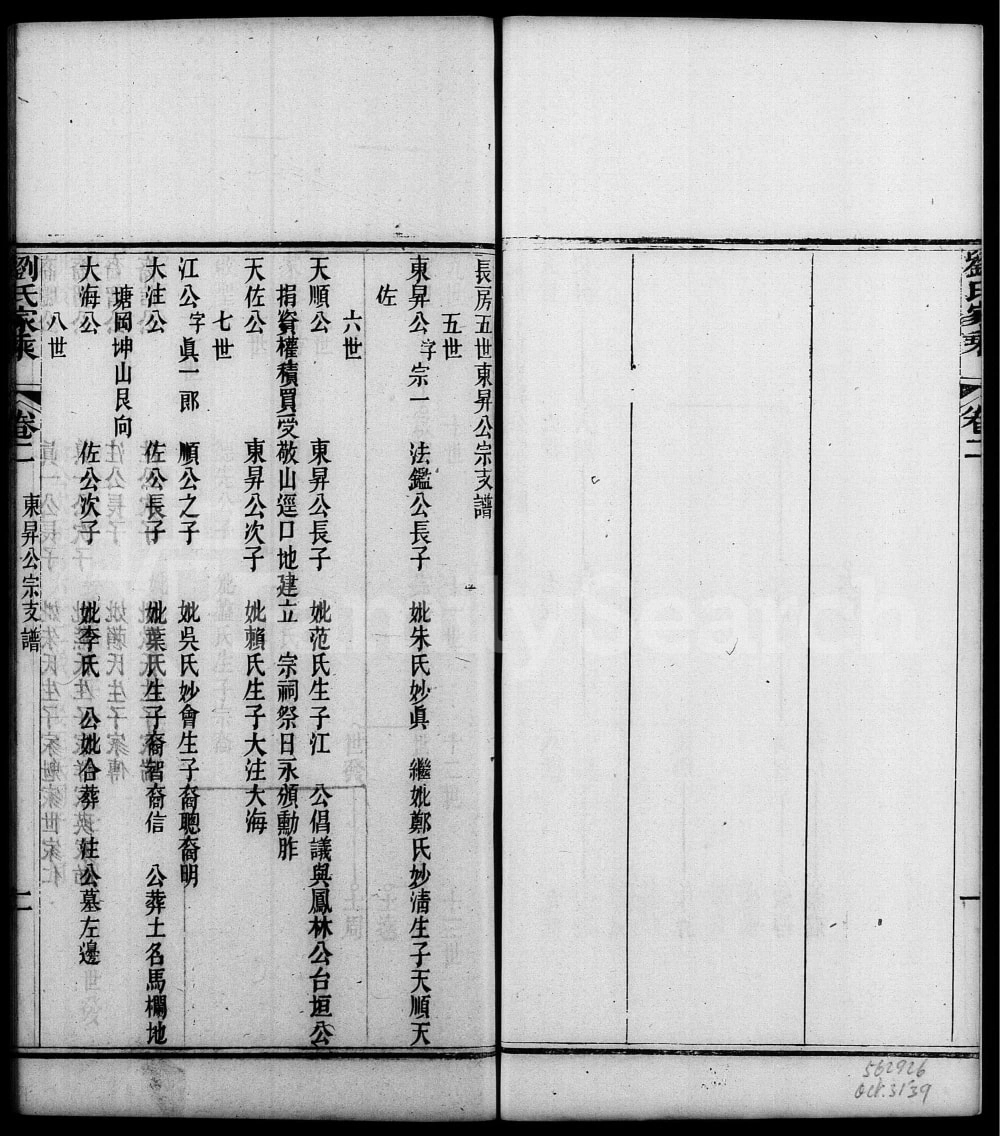 劉氏家乘
卷二
一
562926
長房五世東昇公宗支譜
五世
東昇公 字宗一 法鑑公長子 妣朱氏妙眞 繼妣鄭氏妙淸生子天順天
佐
六世
天順公 東昇公長子 妣范氏生子江 公倡議與鳳林公台垣公
捐資權積買受敬山逕口地建立 宗祠祭日永頒勳胙
天佐公 東昇公次子 妣賴氏生子大注大海
七世
江公 字眞一郎 順公之子 妣吳氏妙會生子裔聰裔明
大注公 佐公長子 妣葉氏生子裔智裔信 公葬土名馬欄地
塘岡坤山艮向
大海公 佐公次子 妣李氏 公妣合葬注公墓左邊
八世
劉氏家乘
卷二
東昇公宗支譜
二